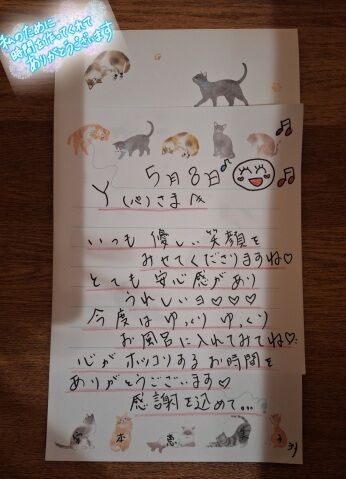 私のために
時間を作ってくれて
ありがとうございます
5月8日
Y(パ)さまへ
いつも 優しい 笑顔を
みせてくださりますね♡
とても 安心感があり
うれしいヨ♡♡♡♡
今度は ゆっくり ゆっくり
お風呂に入れてみてね♡
心がホッコリするお時間を
ありがとうございます♡
感謝を込めて…
本 恵